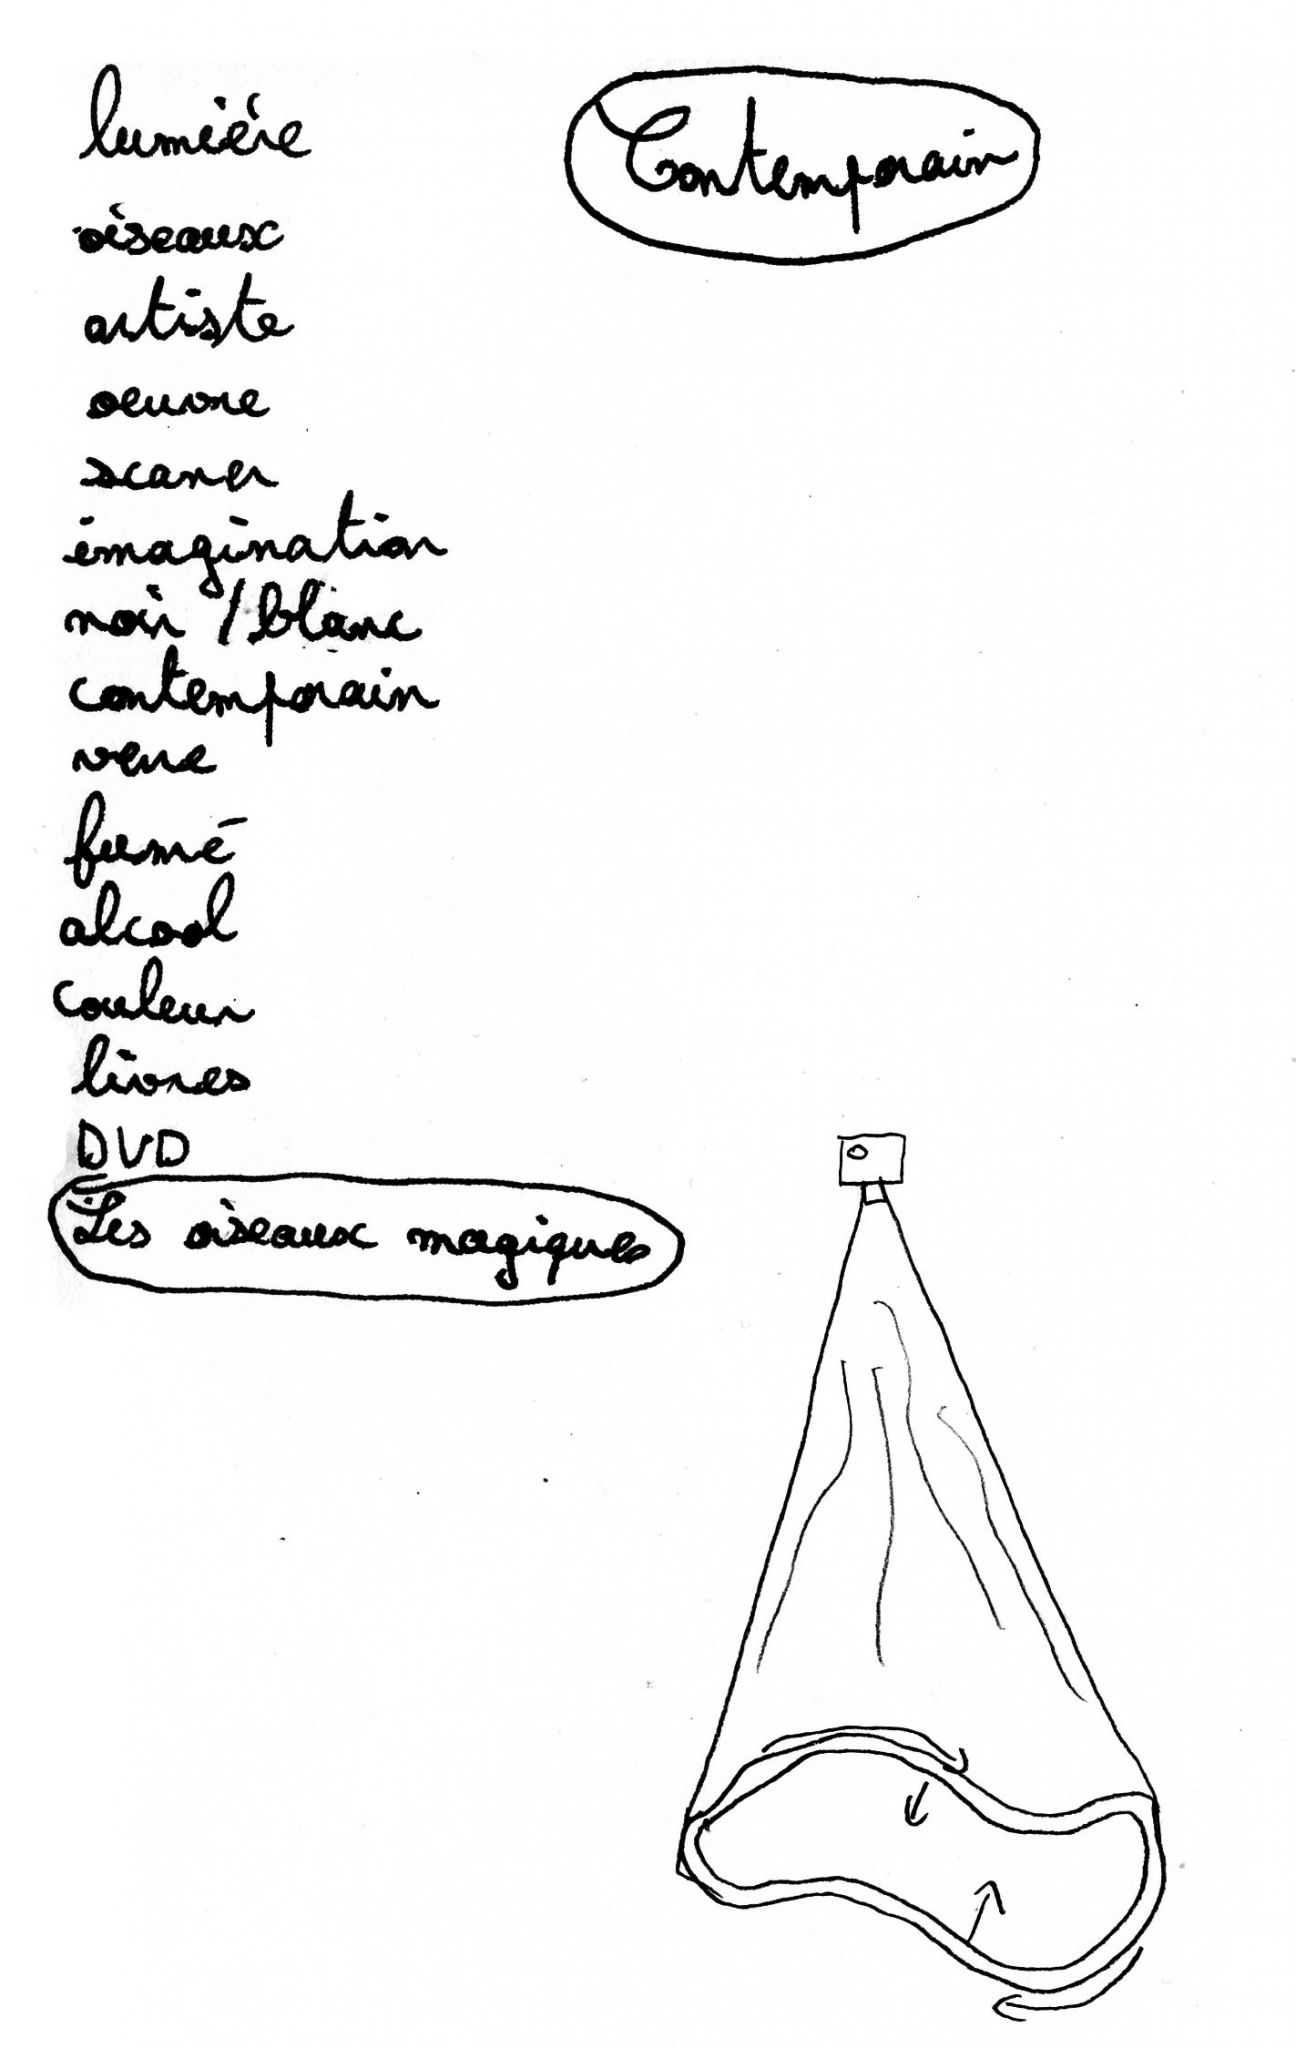 lumière
Contemporain
oiseaux
artiste
oeuvre
scaner
imagination
noir / blanc
contemporain
verre
fumé
alcool
couleur
livres
DVD
Les oiseaux magiques